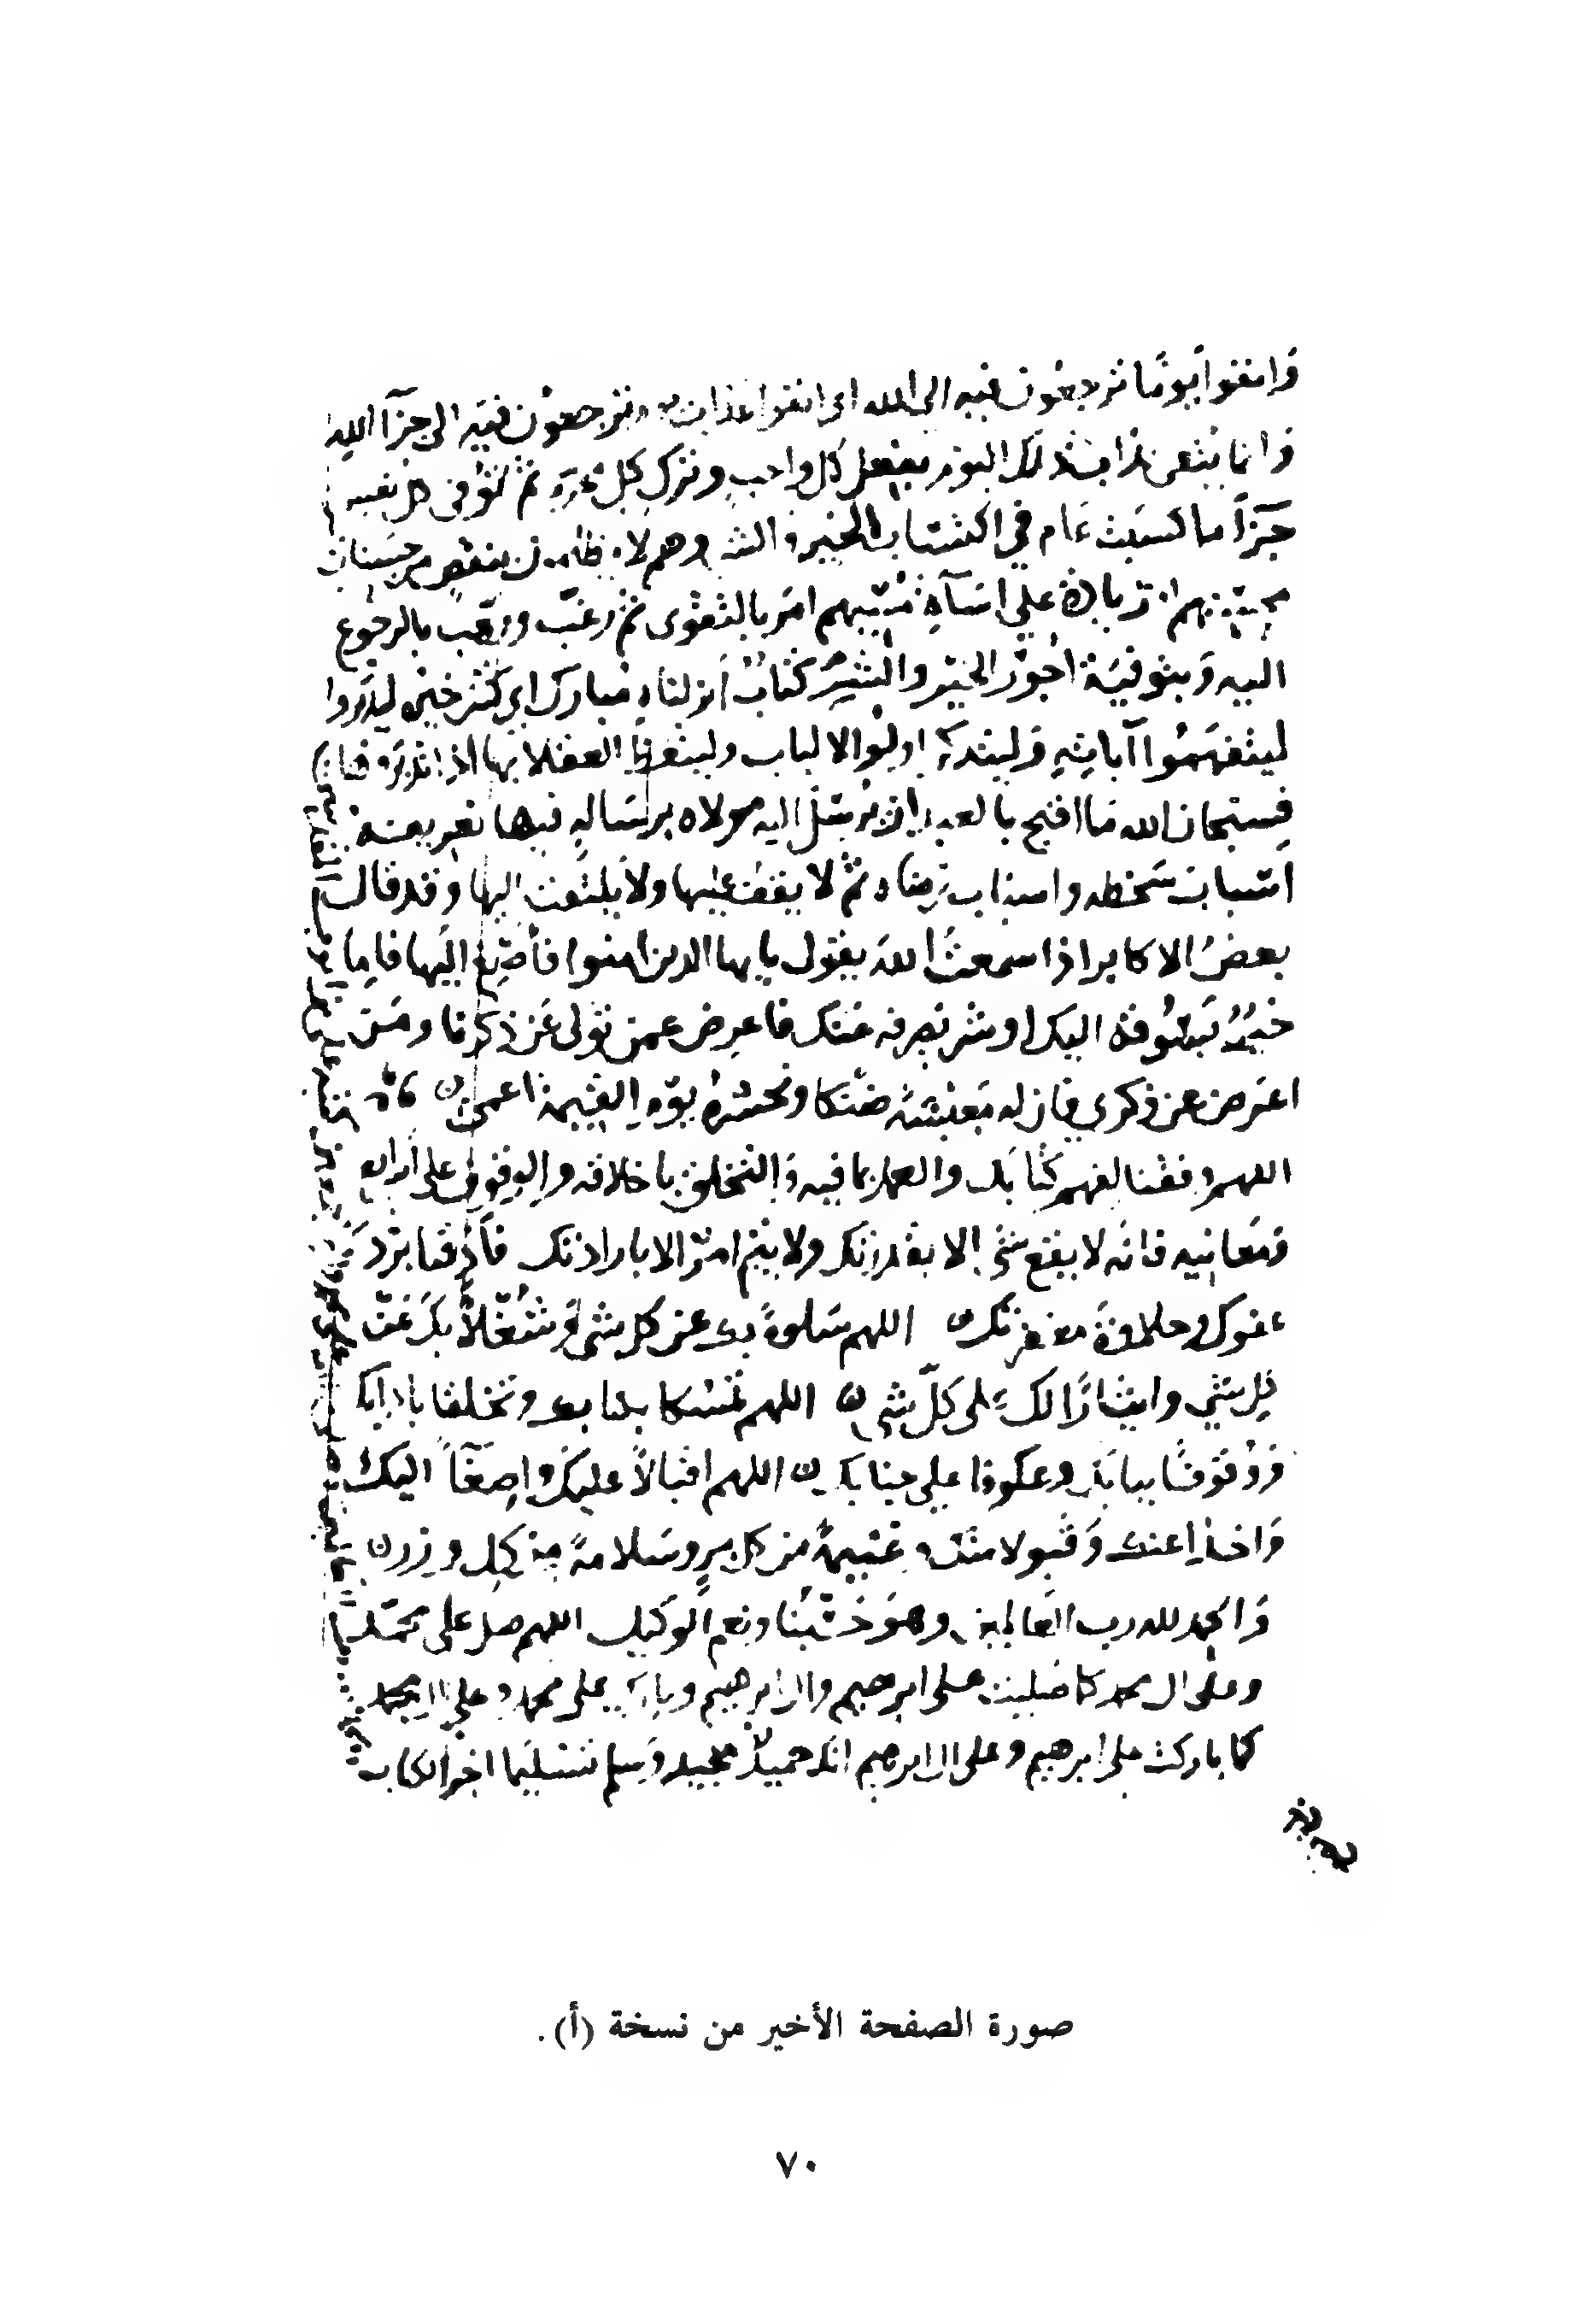 واتقوا يوما ترجعون فيه الى الله اى اتقوا عذاب ترجعون فيه الى جزآ الله
وانما يتقى عذاب ذلك اليوم بفعل كل واجب وترك كل محرم ثم توفى كل نفس
جزآ ما كسبت عام في اكتساب الخير والشر وهم لا يظلمون بنقص من حسنات
محسنهم او زيادة على اسآة مسيئهم امر بالتقوى ثم رغب ورهب بالرجوع
اليه وبتوفية اجور الخير والشر كتاب انزلناه مبارك اي كثر خيره ليدبروا
ليتفهموا آياته وليتذكر اولوا الالباب وليتعظ العقلا بها
فسبحان الله ما اقبح بالعبد ان يرسل اليه مولاه برسالة فيها تعريفه
اسباب سخطه واسباب رضاه ثم لا يقف عليها ولا يلتفت اليها وقد قال
بعض الاكابر اذا سمعت الله يقول يايها الذين امنوا فأصغ اليها فاما
خير تسوقه اليك او شر تصرفه عنك فاعرض عمن تولى عن ذكرنا ومن
اعرض عن ذكري فان له معيشة ضنكا ونحشره يوم القيمة اعمى
اللهم وفقنا لفهم كتابك والعمل بما فيه والتخلق باخلاقه والوقوف على
ومعانيه فانه لا يقع شى الا بقدرتك ولا يتم امر الا بارادتك فأذقنا برد
عفوك وحلاوة مغفرتك اللهم سلوة بك عن كل شى وشغلا بك عن
كل شي وايثارا لك على كل شي اللهم تمسكا بكتابك وتخلقا بادابك
ووقوفا ببابك وعكوفا على جنابك اللهم اقبالا عليك واصغآ اليك
واخذا عنك وقبولا منك وغنيمة من كل بر وسلامة من كل وزر
والحمد لله رب العالمين وهو حسبنا ونعم الوكيل اللهم صل على محمد
وعلى ال محمد كما صليت على ابرهيم وال ابرهيم وبارك على محمد وعلى ال محمد
كما باركت على ابرهيم وعلى ال ابرهيم انك حميد مجيد وسلم تسليما اخر الكتاب
صورة الصفحة الأخير من نسخة (أ).
٧٠